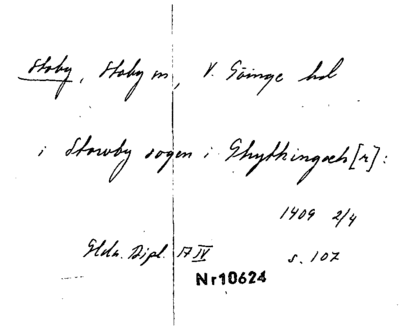 Stoby, Stoby sn, V. Göinge hd
i Stowby sogen i Ghythingæh[r]:
1409 2/4
Glda. Dipl. A IV s. 107
Nr10624